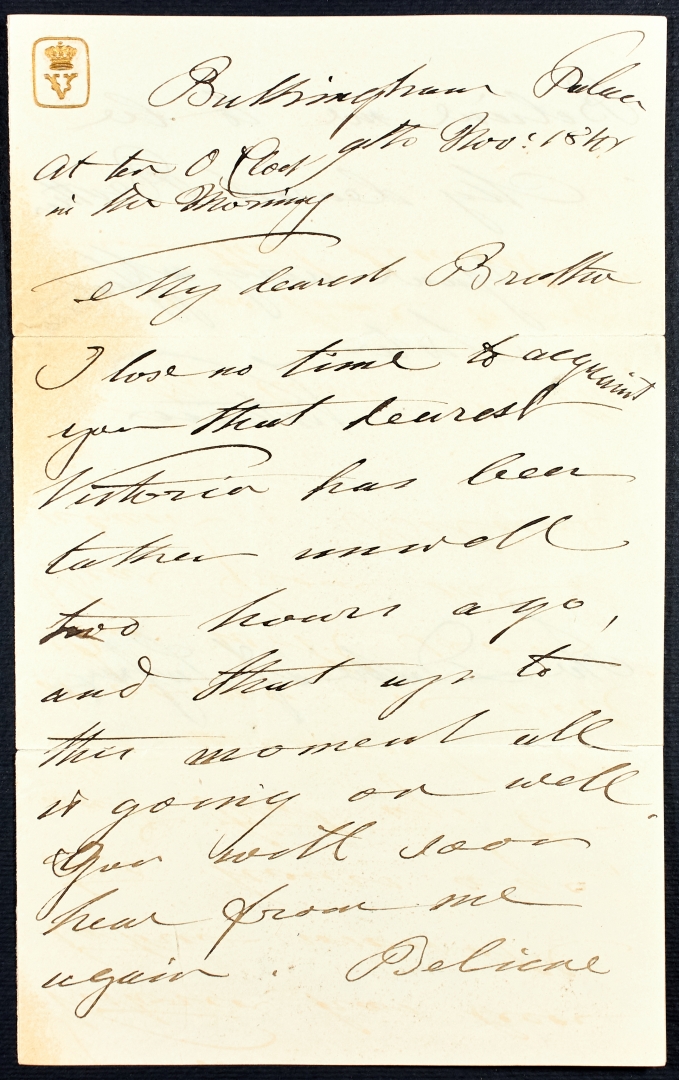 V
Buckingham Palace
9th Nov: 1841
at ten O'Clock
in the Morning
My dearest Brother
I lose no time to acquaint
you that dearest
Victoria has been
taken unwell
two hours ago,
and that up to
this moment all
is going on well.
You will soon
hear from me
again. Believe